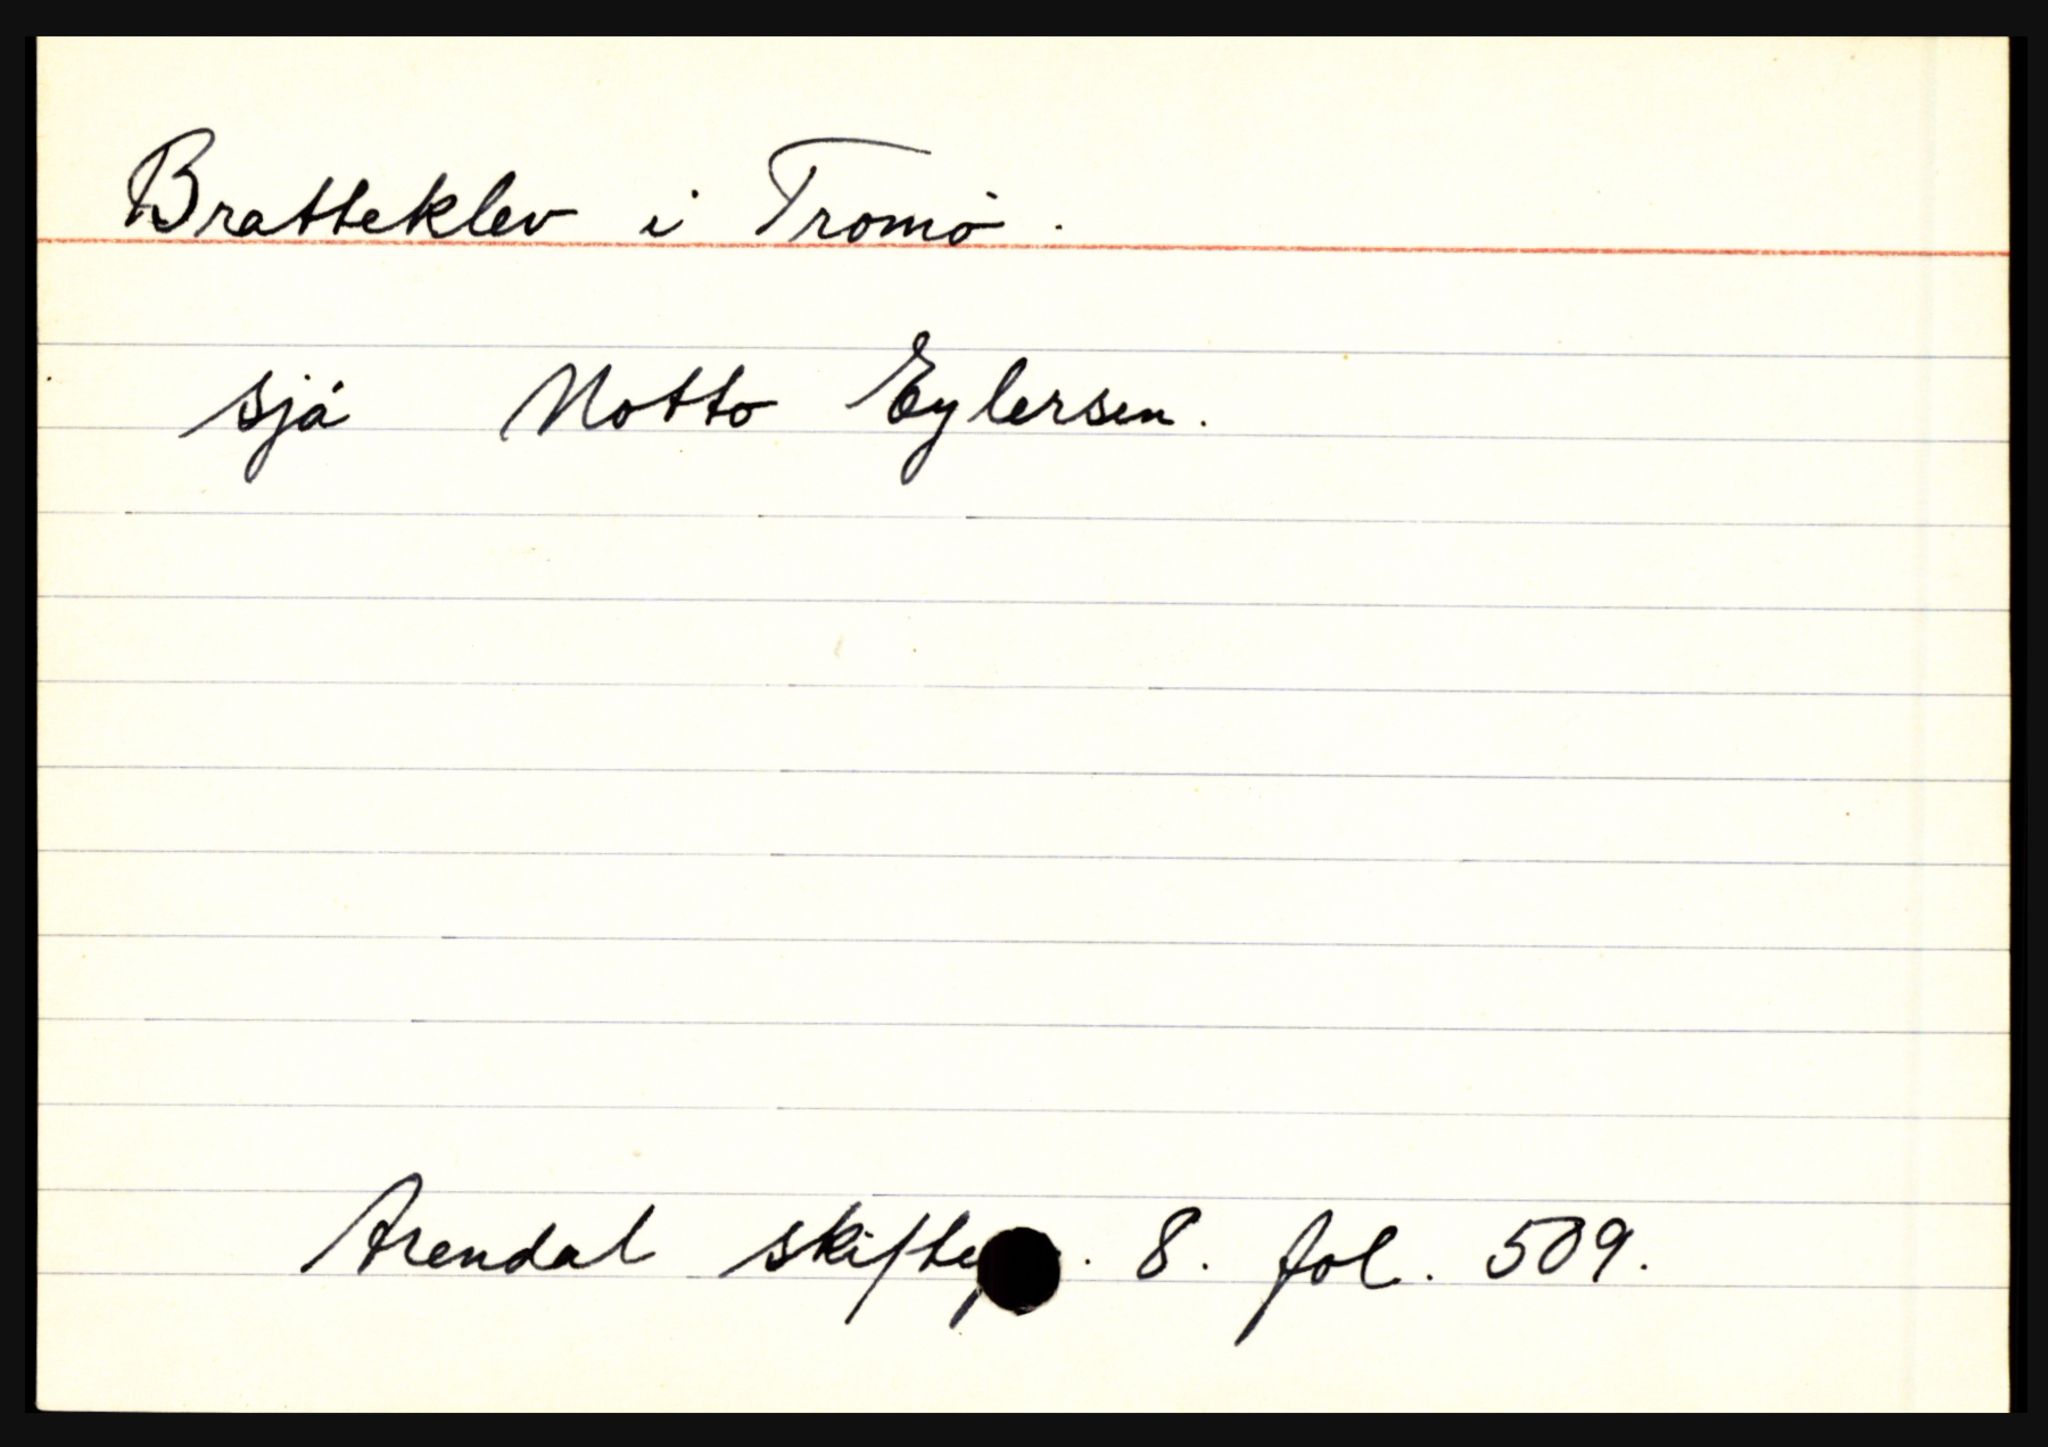 Bratteklev i Tromö.
sjå Notto Eylersen.
Arendal skiftep. 8. fol. 509.